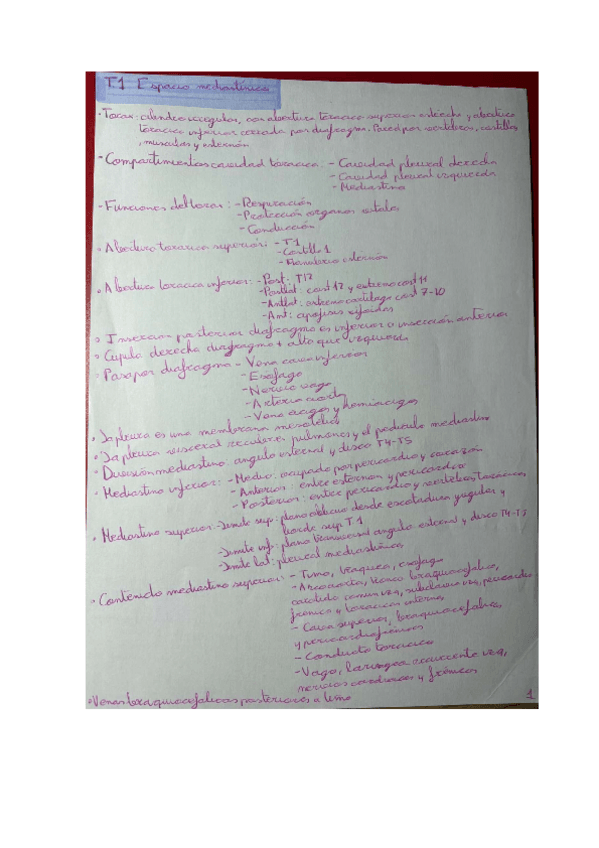 T.1 Espacio mediastínico
• Tórax: cilindro irregular, con abertura torácica superior estrecha y abertura
torácica inferior cerrada por diafragma. Pared por vertebras, costillas
, musculos y esternón
- Compartimientos cavidad torácica: - Cavidad pleural derecha
- Cavidad pleural izquierda
- Mediastino
- Funciones del torax: - Respiración
- Protección organos vitales
- Conducción
• Abertura toracica superior: - T1
- Costilla 1
- Manubrio esternón
• Abertura toracica inferior: - Post: T12
- Postlat: cost 12 y extremo cost 11
- Antlat: extremo cartilago cost 7-10
- Ant: apofisis xifoides
• Insercion posterior diafragma es inferior a inserción anterior
• Cupula derecha diafragma + alto que izquierda
• Pasa por diafragma - Vena cava inferior
- Esofago
- Nervio vago
- Arteria aorta
- Vena ácigos y hemiacigos
• La pleura es una membrana mesotelial
• La pleura visceral recubre pulmones y el pediculo mediastino
• División mediastino: angulo esternal y disco T4-T5
• Mediastino inferior: - Medio: ocupado por pericardio y corazón
- Anterior: entre esternon y pericardio
- Posterior: entre pericardio y vertebras toracicas
• Mediastino superior: - Limite sup: plano oblicuo desde escotadura yugular y
borde sup T1
- Limite inf: plano transversal angulo esternal y disco T4-T5
- Limite lat: pleural mediastínica
• Contenido mediastino superior: - Timo, tráquea, esofago
- Arco aorta, tronco braquiocefalico,
carotida comun izq, subclavia izq, pericardio
frenica y toracica interna,
- Cava superior, braquiocefalica,
y pericardiofrénicas
- Conducto toracico
- Vago, laringeo recurrente izq,
nervios cardiacos y frénicos
• Venas braquiocefalicas posteriores a timo
1